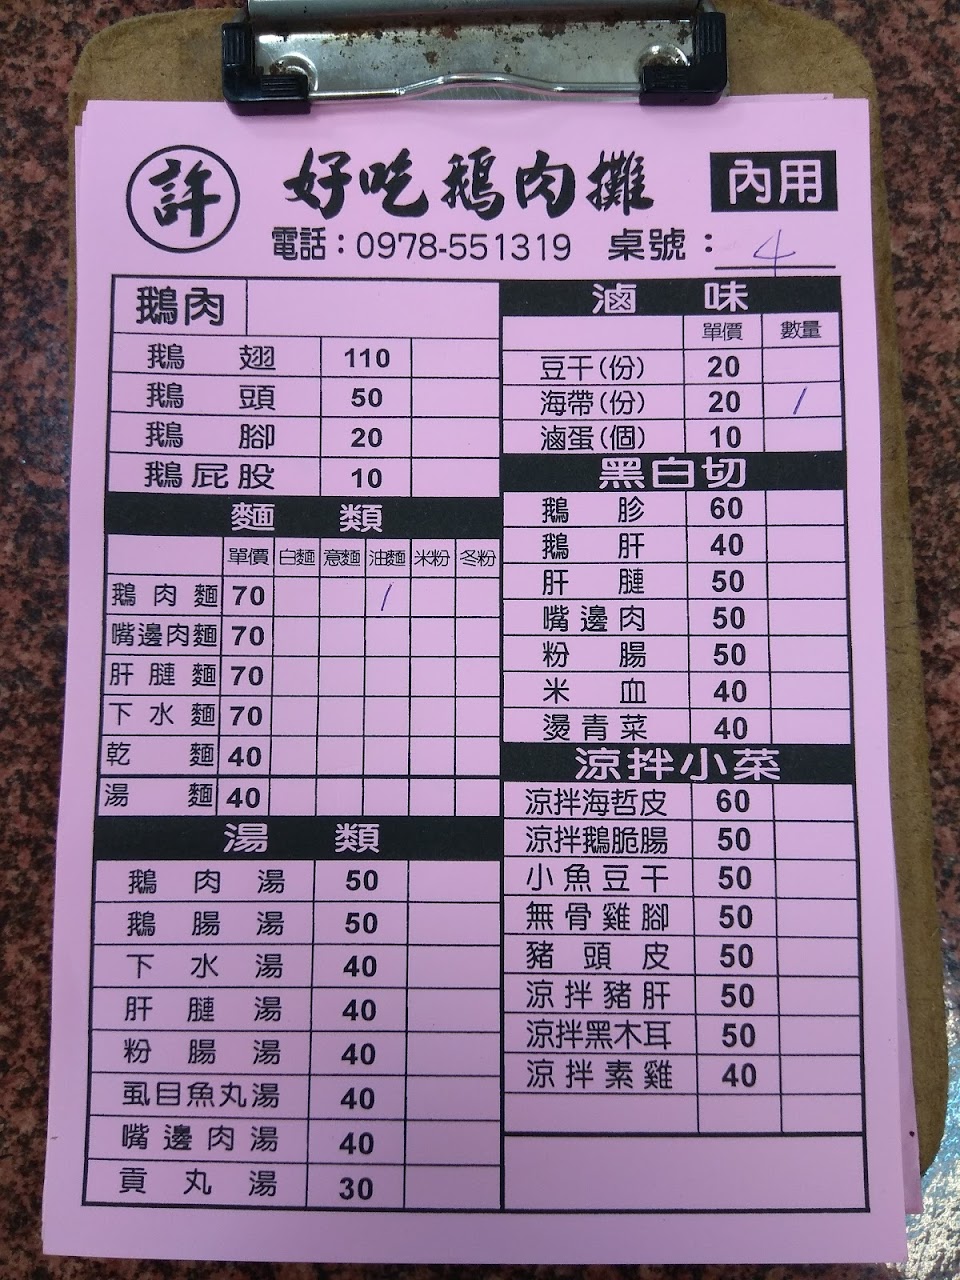 許 好吃鵝肉攤 內用
電話：0978-551319 桌號：4
鵝肉
鵝翅 110
鵝頭 50
鵝腳 20
鵝屁股 10
麵類
單價 白麵 意麵 油麵 米粉 冬粉
鵝肉麵 70 1
嘴邊肉麵 70
肝腱麵 70
下水麵 70
乾麵 40
湯麵 40
湯類
鵝肉湯 50
鵝腸湯 50
下水湯 40
肝腱湯 40
粉腸湯 40
虱目魚丸湯 40
嘴邊肉湯 40
貢丸湯 30
滷味
單價 數量
豆干(份) 20
海帶(份) 20 1
滷蛋(個) 10
黑白切
鵝胗 60
鵝肝 40
肝腱 50
嘴邊肉 50
粉腸 50
米血 40
燙青菜 40
涼拌小菜
涼拌海哲皮 60
涼拌鵝脆腸 50
小魚豆干 50
無骨雞腳 50
豬頭皮 50
涼拌豬肝 50
涼拌黑木耳 50
涼拌素雞 40